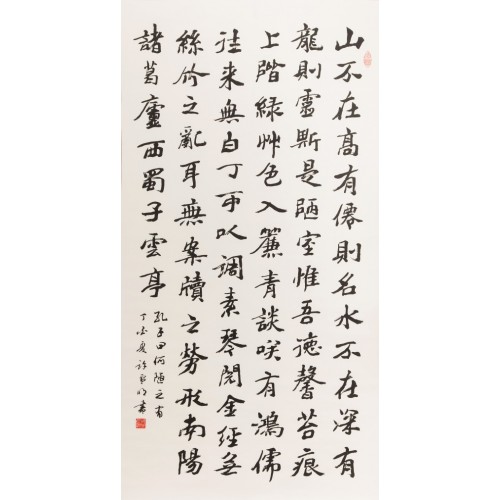 山不在髙有僊則名水不在深有
龍則靈斯是陋室惟吾德馨苔痕
上階綠艸色入簾青談咲有鴻儒
往来無白丁可以調素琴閱金經無
絲竹之亂耳無案牘之勞形南陽
諸葛廬西蜀子雲亭
孔子曰何陋之有
丁酉夏許書